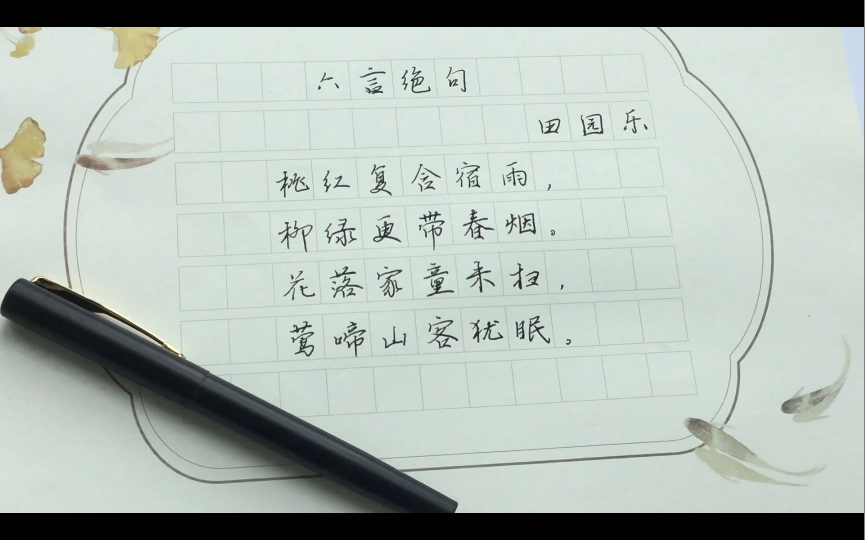 六言绝句
田园乐
桃红复含宿雨，
柳绿更带春烟。
花落家童未扫，
莺啼山客犹眠。